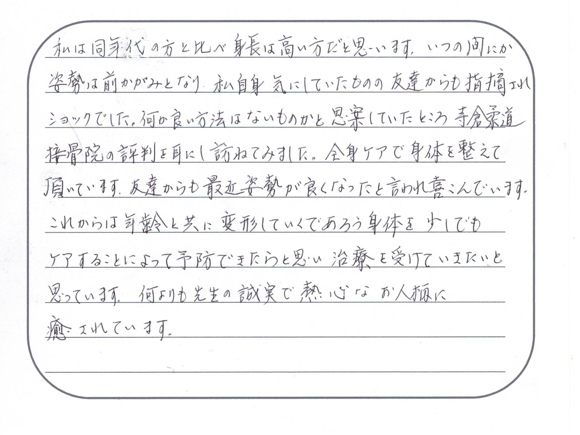 私は同年代の方と比べ身長は高い方だと思います。いつの間にか
姿勢は前かがみとなり 私自身気にしていたものの友達からも指摘され
ショックでした。何か良い方法はないものかと思案していたところ 寺倉柔道
接骨院の評判を耳にし訪ねてみました。全身ケアで身体を整えて
頂いています。友達からも最近姿勢が良くなったと言われ喜こんでいます。
これからは年齢と共に変形していくであろう身体を少しでも
ケアすることによって予防できたらと思い 治療を受けていきたいと
思っています。何よりも先生の誠実で熱心なお人柄に
癒されています。